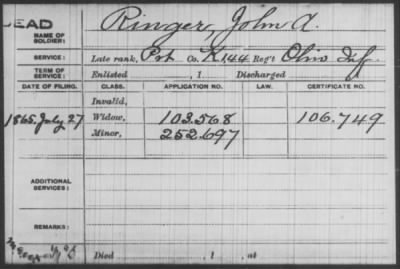 DEAD
NAME OF SOLDIER: Ringer, John A.
SERVICE: Late rank, Pvt Co. K 144 Reg't Ohio Inf
TERM OF SERVICE: Enlisted , 1 . Discharged
DATE OF FILING. CLASS. APPLICATION NO. LAW. CERTIFICATE NO.
Invalid,
1865. July 27 Widow, 103.568 106.749
Minor, 252.697
ADDITIONAL SERVICES:
REMARKS:
Died , 1 , at